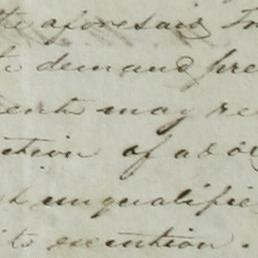 the aforesaid
demand pre
ent may re
ction of a
unqualifie
its execution.